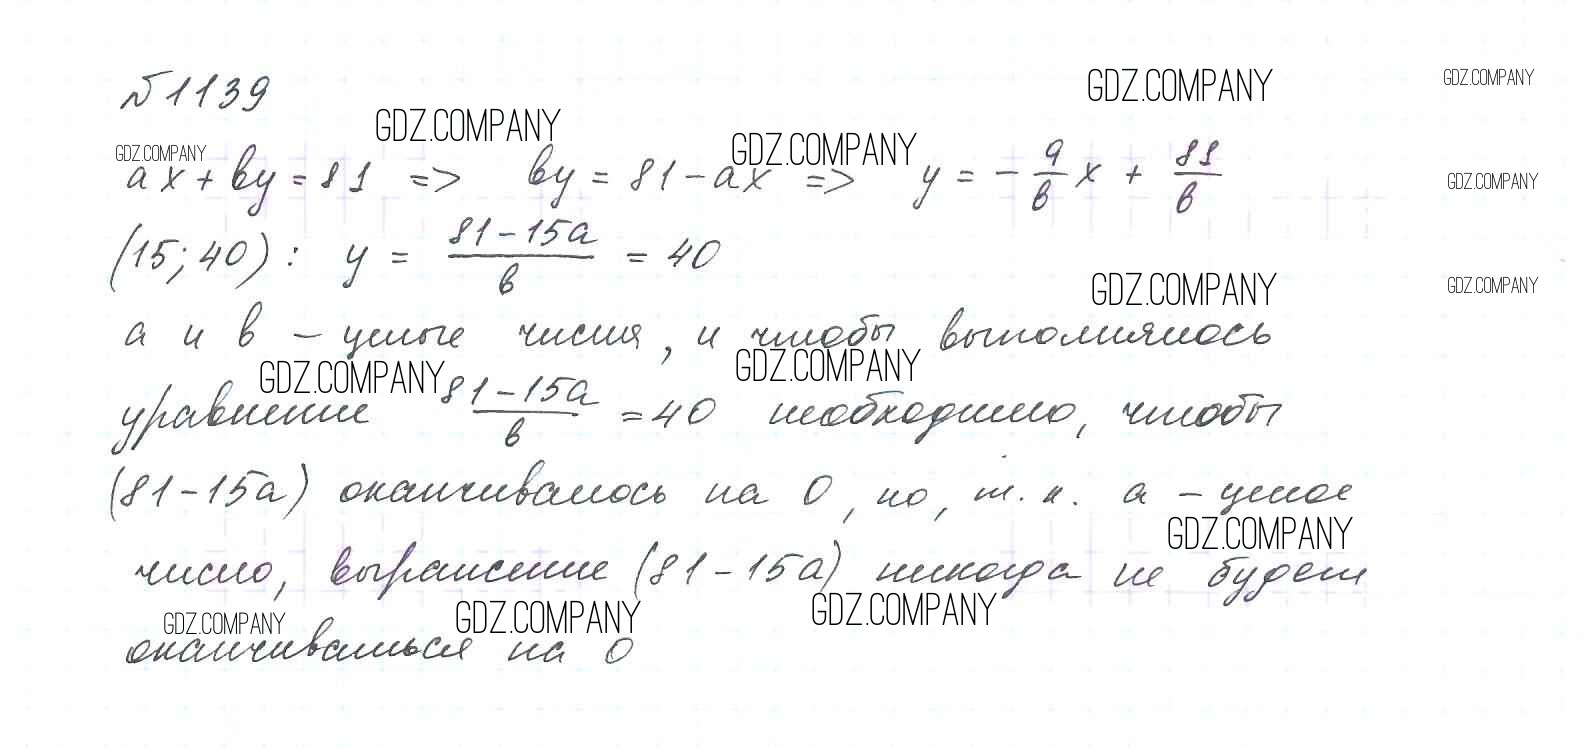 №1139
GDZ.COMPANY GDZ.COMPANY
GDZ.COMPANY GDZ.COMPANY GDZ.COMPANY
ax + by = 81 => by = 81 - ax => y = - a/b x + 81/b GDZ.COMPANY
(15; 40): y = (81 - 15a)/b = 40
GDZ.COMPANY GDZ.COMPANY
a и b - целые числа, и чтобы выполнялось
GDZ.COMPANY GDZ.COMPANY
уравнение (81 - 15a)/b = 40 необходимо, чтобы
(81 - 15a) оканчивалось на 0, но, т.к. a - целое
GDZ.COMPANY
число, выражение (81 - 15a) никогда не будет
GDZ.COMPANY GDZ.COMPANY GDZ.COMPANY
оканчиваться на 0